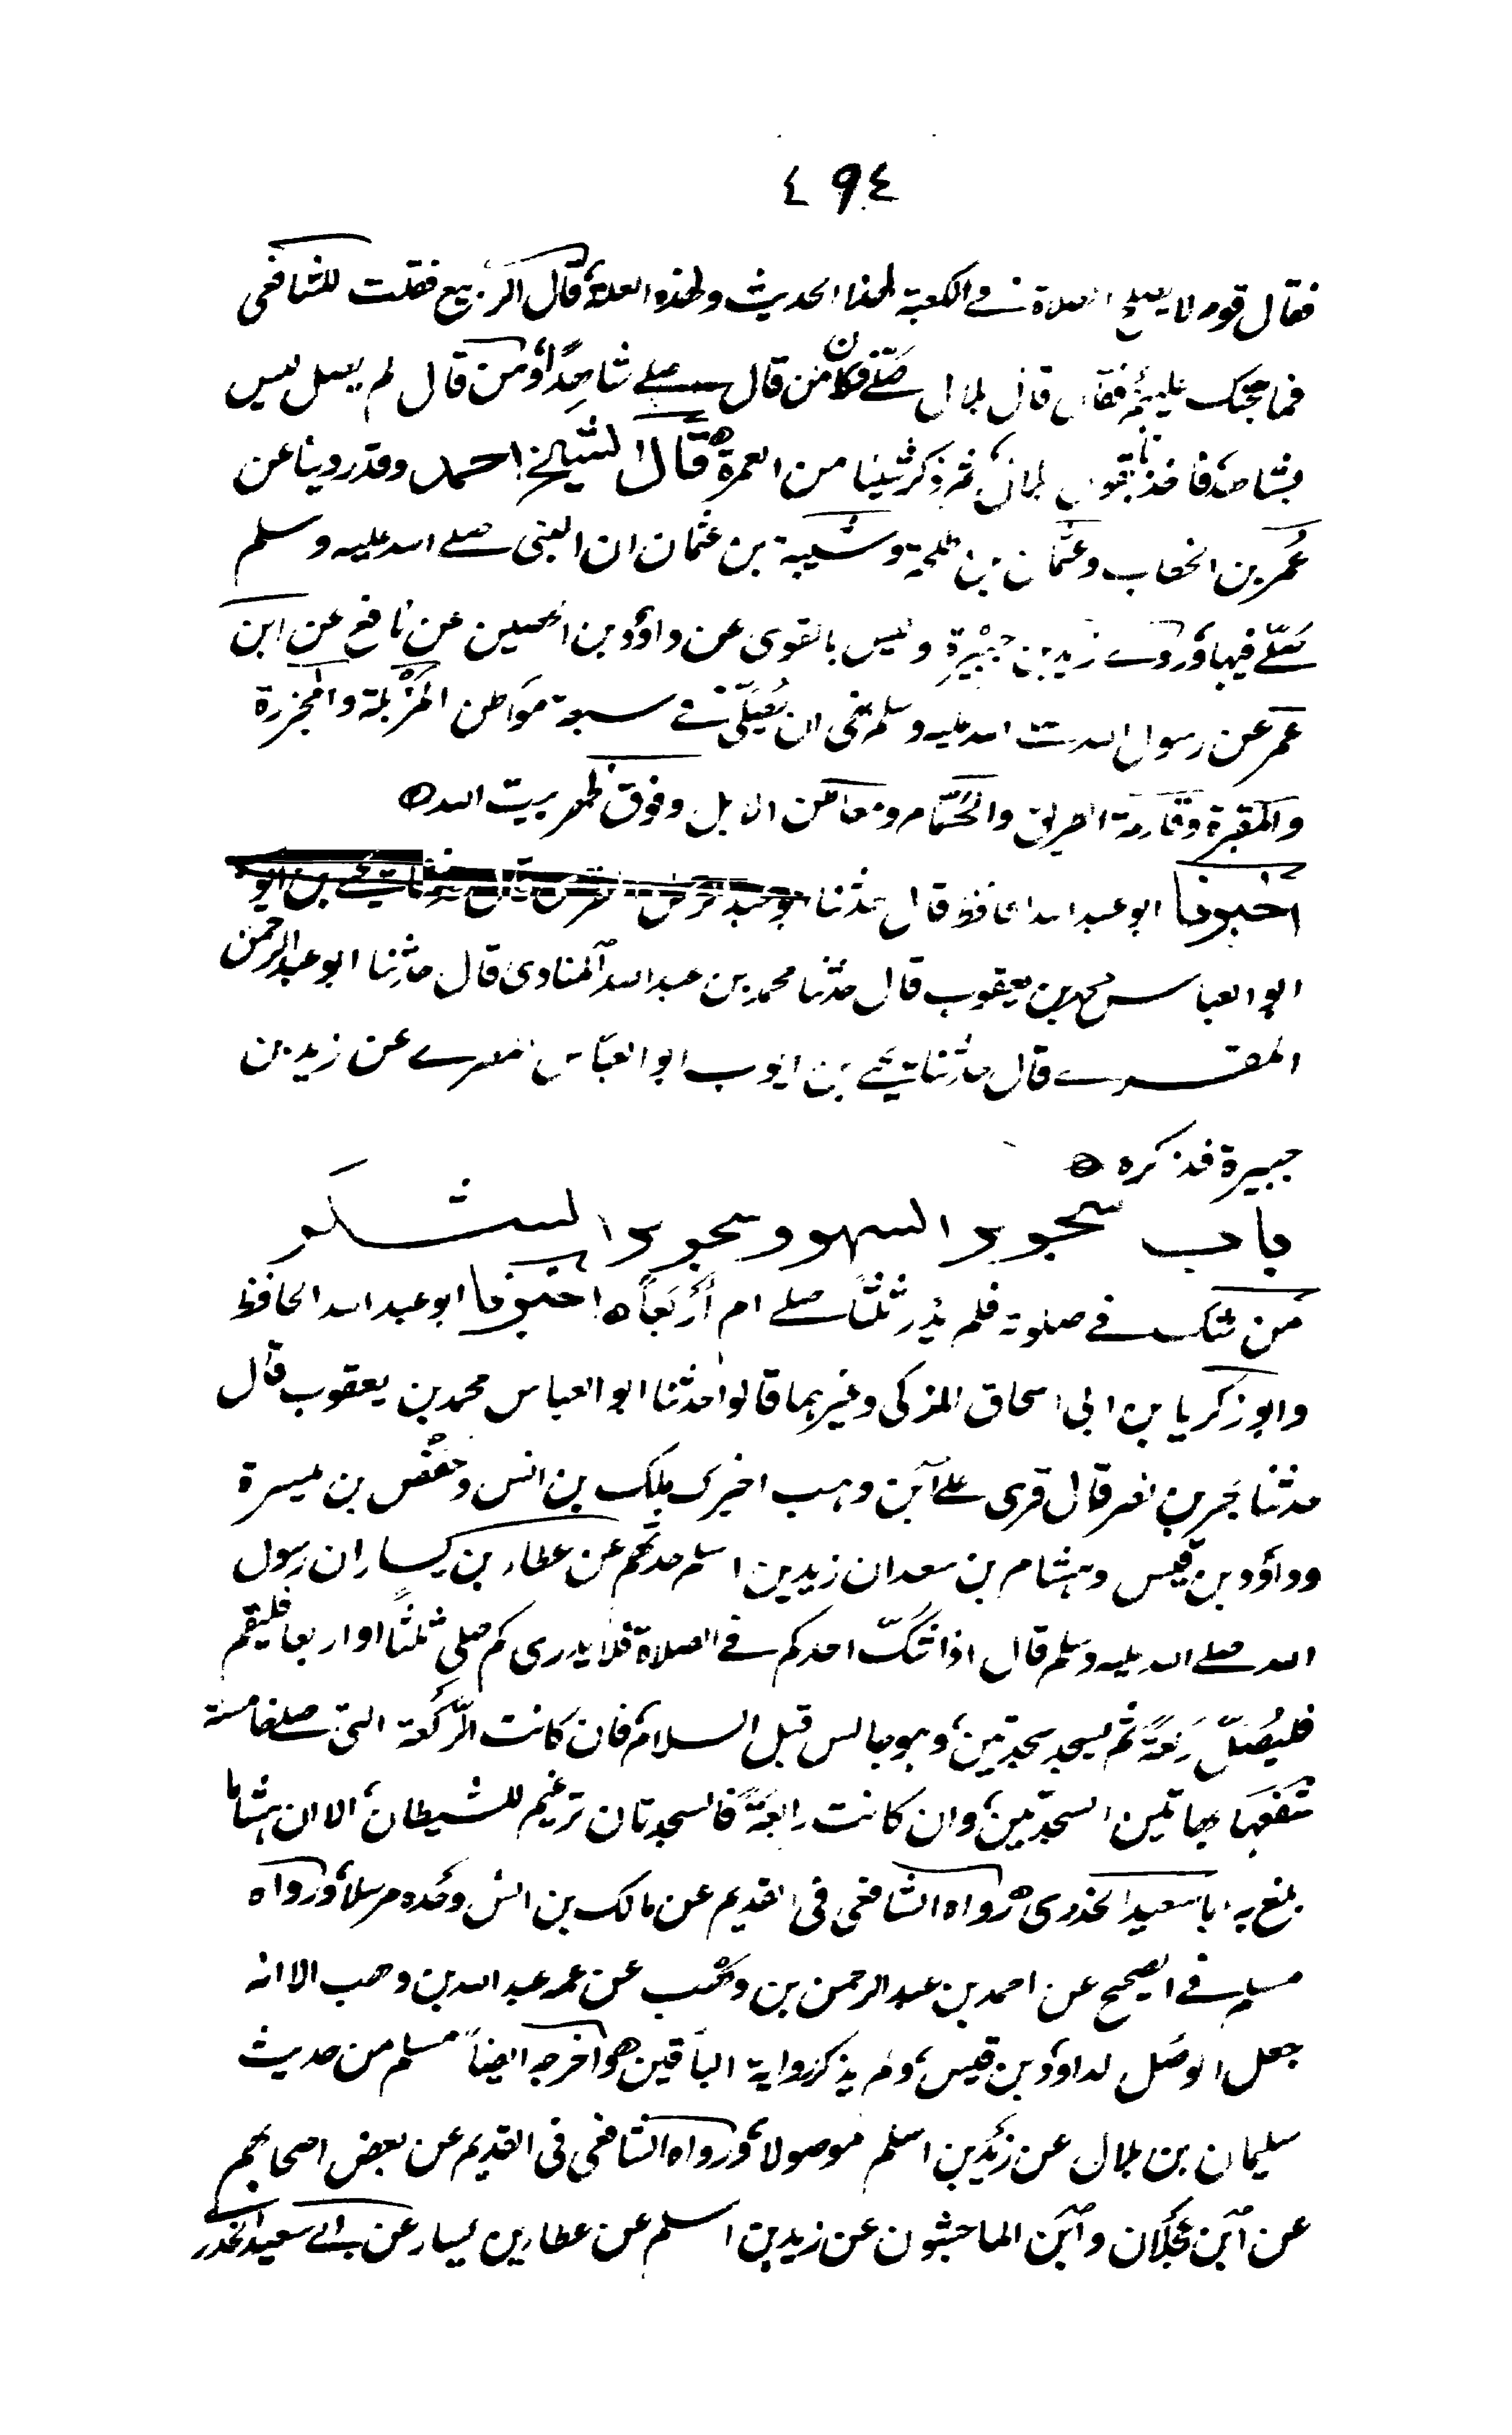 ٤٩٤
فقال قوم لا يصلح الصلاة في الكعبة لهذا الحديث ولهذه العلة قال الربيع فقلت للشافعي
فما حجتك عليهم فقال قال بلال صلّى فكان من قال صلى شاهدًا ومن قال لم يصل ليس
بشاهد فاخذنا بقول بلال ثم ذكر شيئا من العمرة قال الشيخ احمد وقد روينا عن
عُمر بن الخطاب وعثمان بن طلحة وشيبة بن عثمان ان النبي صلى الله عليه وسلم
صَلّى فيها وروى زيد بن جَبِيْرة وليس بالقوى عن داؤد بن الحصين عن نافع عن ابن
عمر عن رسول الله صلى الله عليه وسلم نهى ان يُصَلّى في سبعة مواطن المَزْبلة والمجزرة
والمقبرة وقارعة الطريق والحمّام ومعاطن الابل وفوق ظهر بيت الله
اخبرنا ابو عبد الله الحافظ قال حدثنا
ابو العباس محمد بن يعقوب قال حدثنا محمد بن عبد الله المنادى قال حدثنا ابو عبد الرحمن
المقرى قال حدثنا يحيى بن ايوب ابو العبّاس المصرى عن زيد بن
جبيرة فذكره
باب سجود السهو وسجود الشكر
من شك في صلوته فلم يَدر ثلثًا صلى ام أَرْبَعًا اخبرنا ابو عبد الله الحافظ
وابو زكريا بن ابى اسحاق المزكى وغيرهما قالوا حدثنا ابو العباس محمد بن يعقوب قال
حدثنا بَحر بن نصر قال قرى على ابن وهب اخبرك ملك بن انس وحَفْص بن ميسرة
وداؤد بن قيس وهشام بن سعد ان زيد بن اسلم حدثهم عن عطاء بن يسار ان رسول
الله صلى الله عليه وسلم قال اذا شكّ احدكم في الصلاة فلا يدرى كم صلى ثلثًا او اربعا فليقم
فليُصَلّ ركعةً ثم ليسجد سجدتين وهو جالس قبل السلام فان كانت الرّكعة التي صلى خامسة
شَفَعها بهاتين السجدتين وان كانت رابعةً فالسجدتان ترغيم للشيطان الا ان هشاما
بلغ به ابا سعيد الخدرى رواه الشافعى فى القديم عن مالك بن انس وحده مرسلا ورواه
مسلم في الصحيح عن احمد بن عبد الرحمن بن وهْب عن عمه عبد الله بن وهب الا انه
جعل الوصل لداؤد بن قيس ولم يذكر رواية الباقين واخرجه ايضًا مسلم من حديث
سليمان بن بلال عن زيد بن اسلم موصولا ورواه الشافعى فى القديم عن بعض اصحابهم
عن ابن عجلان وابن الماجشون عن زيد بن اسلم عن عطا بن يسار عن ابى سعيد الخدر